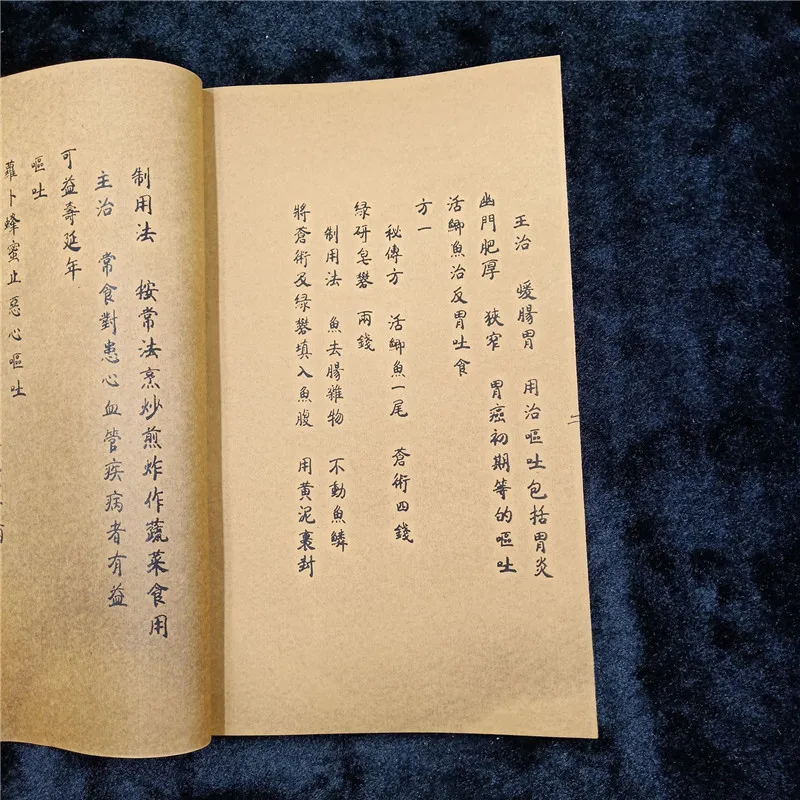 王治 暖腸胃 用治嘔吐包括胃炎
幽門肥厚 狹窄 胃癌初期等的嘔吐
活鯽魚治反胃吐食
方一
秘傳方 活鯽魚一尾 蒼術四錢
绿研皂礬 兩錢
制用法 魚去腸雜物 不動魚鱗
將蒼術及绿礬填入魚腹 用黄泥裹封
二
制用法 按常法烹炒煎炸作蔬菜食用
主治 常食對患心血管疾病者有益
可益壽延年
嘔吐
蘿卜蜂蜜止惡心嘔吐